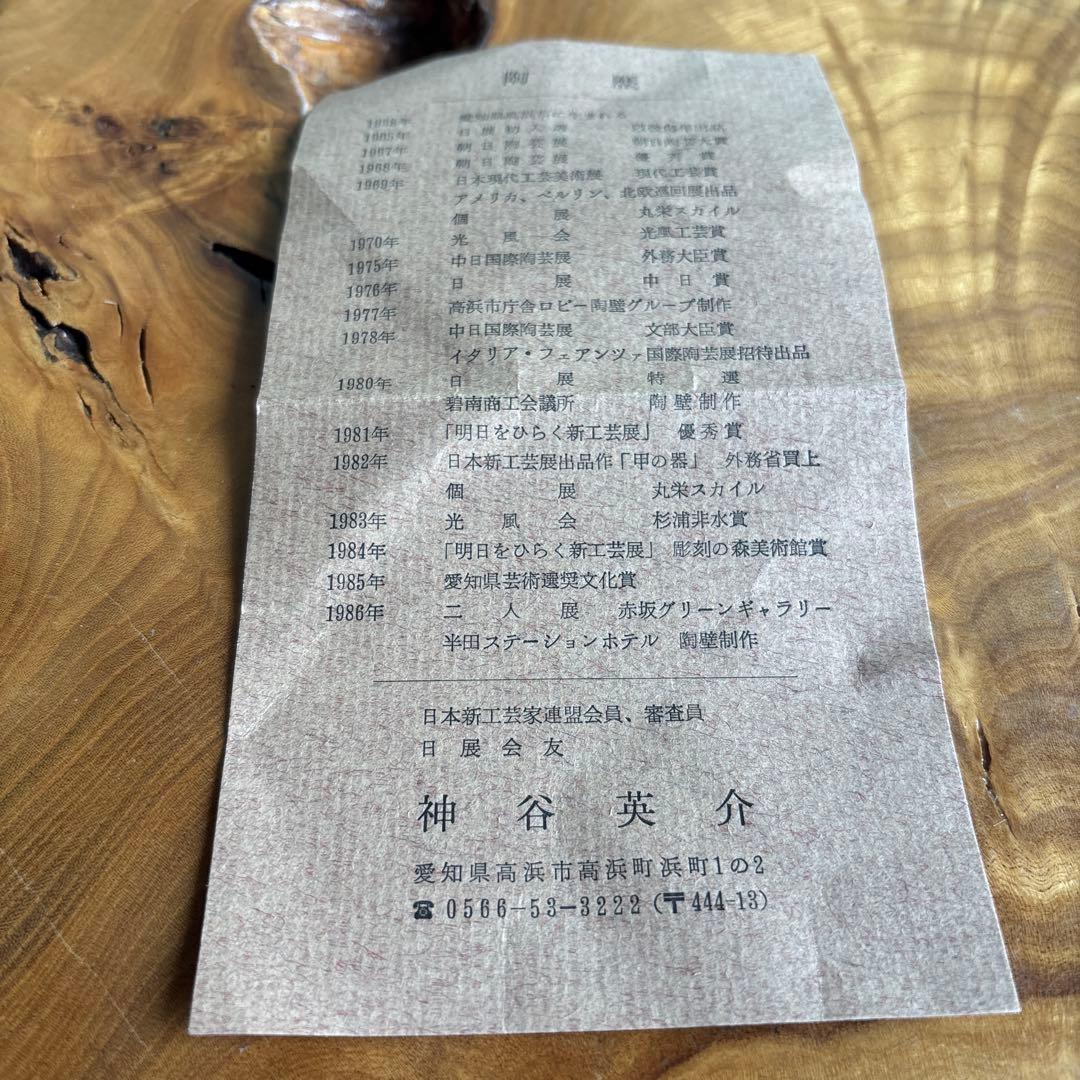 1965年　日展初入選
1967年　朝日陶芸展　朝日陶芸大賞
1968年　朝日陶芸展　優秀賞
1969年　日本現代工芸美術展　現代工芸賞
アメリカ、ベルリン、北欧巡回展出品
個展　丸栄スカイル
1970年　光風会　光風工芸賞
1975年　中日国際陶芸展　外務大臣賞
1976年　日展　中日賞
1977年　高浜市庁舎ロビー陶壁グループ制作
1978年　中日国際陶芸展　文部大臣賞
イタリア・フェアンツァ国際陶芸展招待出品
1980年　日展　特選
碧南商工会議所　陶壁制作
1981年　「明日をひらく新工芸展」　優秀賞
1982年　日本新工芸展出品作「甲の器」　外務省買上
個展　丸栄スカイル
1983年　光風会　杉浦非水賞
1984年　「明日をひらく新工芸展」　彫刻の森美術館賞
1985年　愛知県芸術選奨文化賞
1986年　二人展　赤坂グリーンギャラリー
半田ステーションホテル　陶壁制作
日本新工芸家連盟会員、審査員
日展会友
神谷英介
愛知県高浜市高浜町浜町1の2
☎ 0566-53-3222（〒444-13）